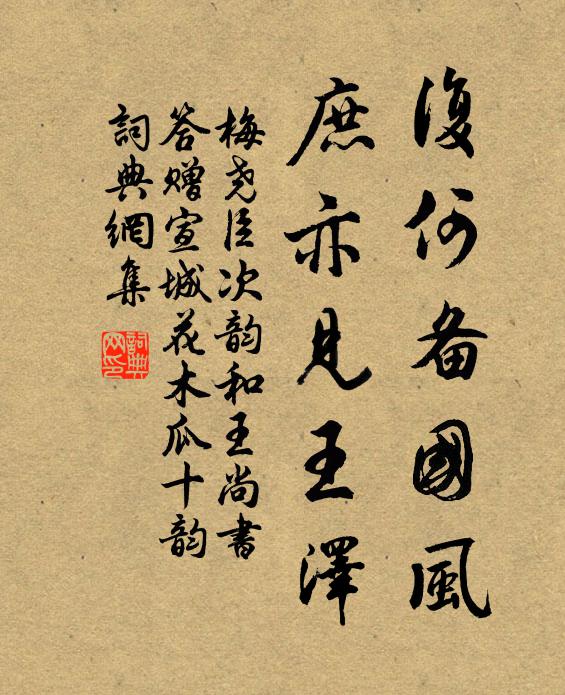 復何备國風
庶亦見王澤
梅尧臣次韵和王尚書
答赠宣城花木瓜十韵
詞典網集
詞典网印